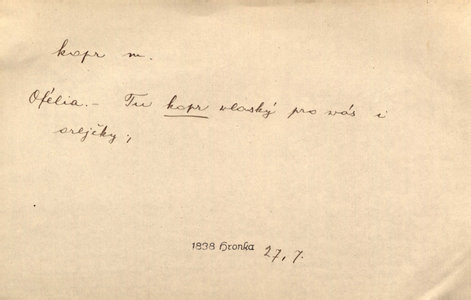 kopr m.
Ofélia. – Tu kopr vlaský pro vás i
orlejčky;
1838 Hronka 27, 7.